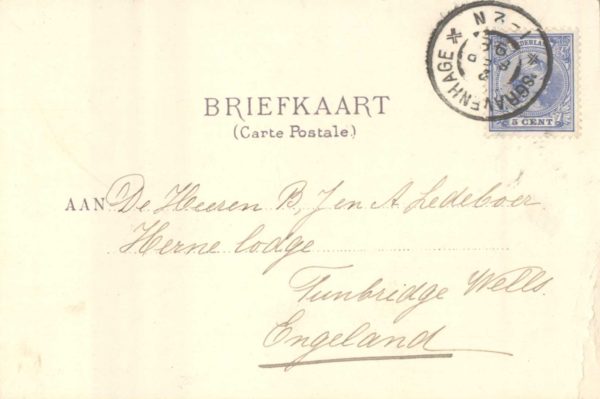 'SGRAVENHAGE
NEDERLAND
5 CENT
BRIEFKAART
(Carte Postale.)
AAN De Heeren B, J en A Ledeboer
Herne lodge
Tunbridge Wells.
Engeland